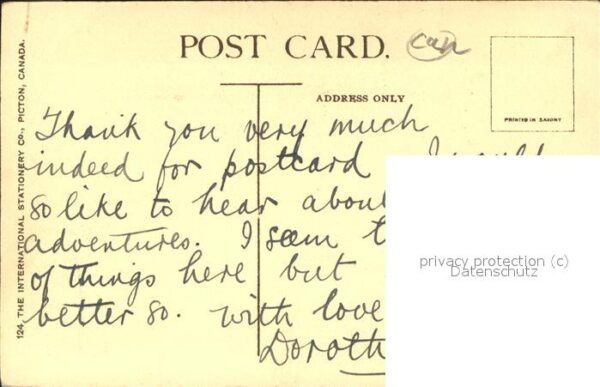 POST CARD.
can
ADDRESS ONLY
PRINTED IN SAXONY
124, THE INTERNATIONAL STATIONERY CO., PICTON, CANADA.
Thank you very much
indeed for postcard I
so like to hear about
adventures. I seem
of things here but
better so. with love
privacy protection (c)
Datenschutz